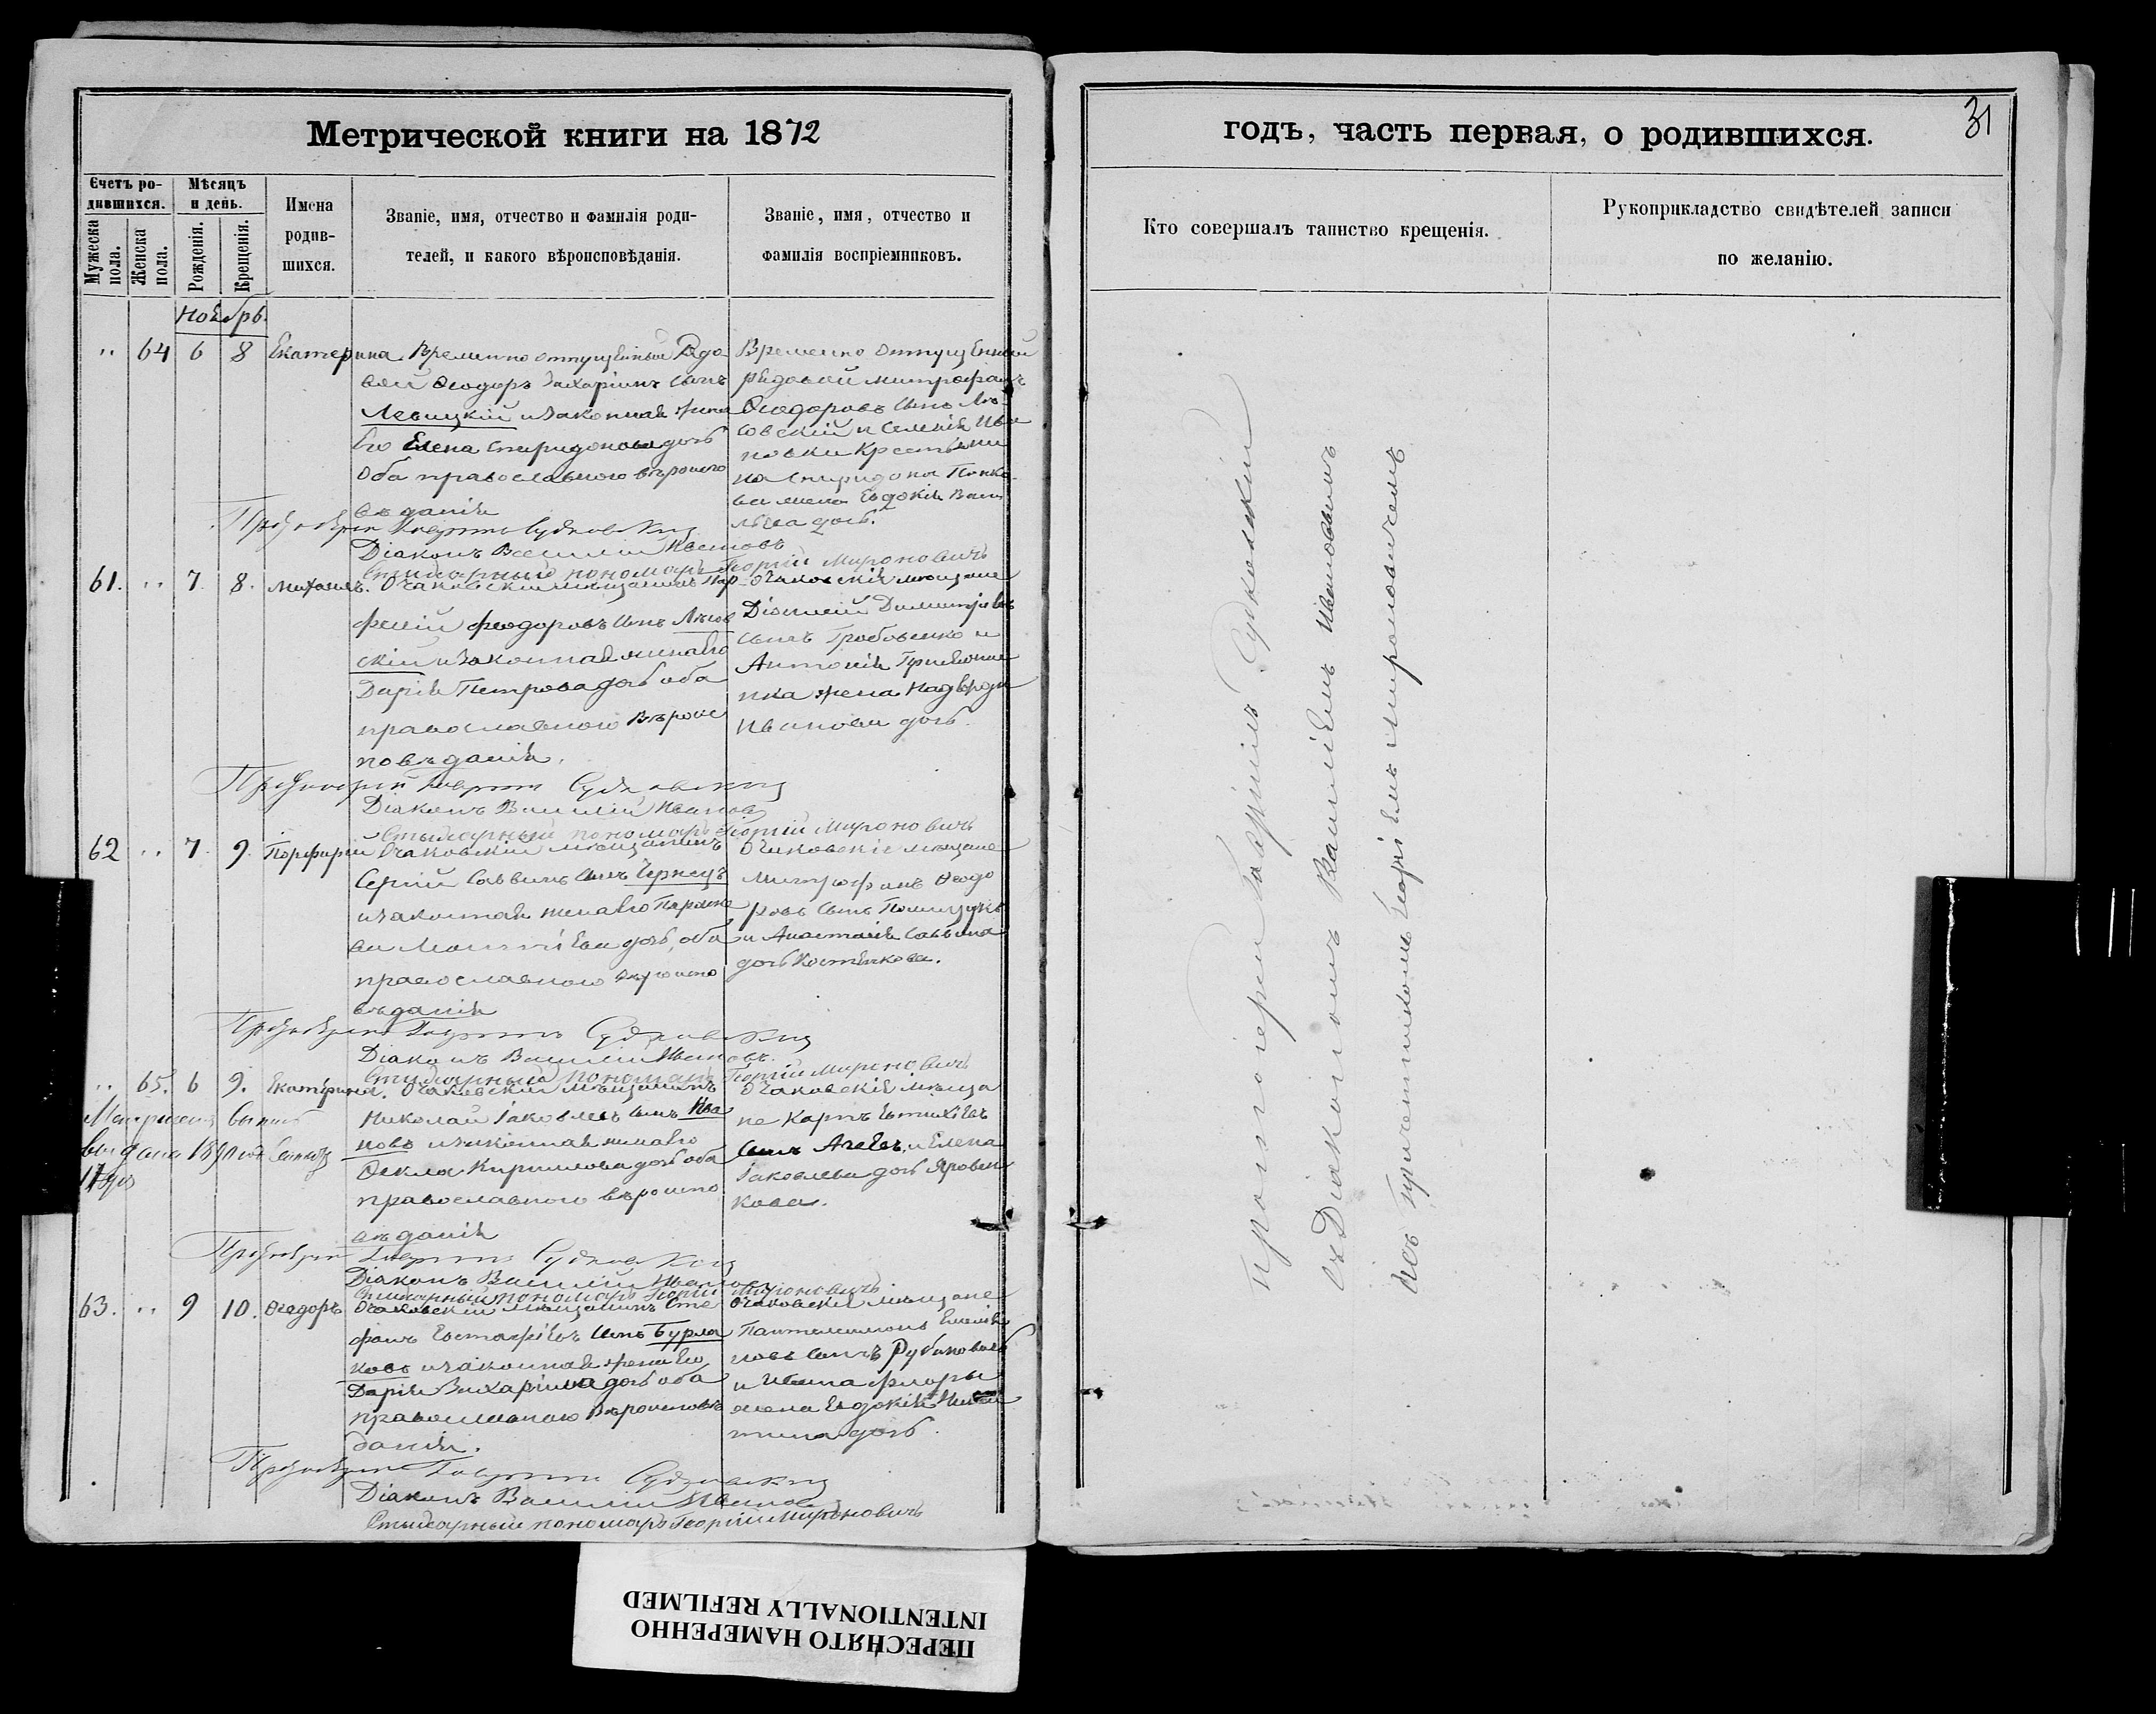 Метрической книги на 1872
Счетъ родившихся.
Мѣсяцъ и день.
Мужеска пола.
Женска пола.
Рожденія.
Крещенія.
Имена родившихся.
Званіе, имя, отчество и фамилія родителей, и какого вѣроисповѣданія.
Званіе, имя, отчество и фамилія воспріемниковъ.
Ноябрь.
" 64 6 8 Екатерина.
Временно отпущенный Рядо
вой Ѳеодоръ Захаріинъ сынъ
Левицкій и законная жена
Его Елена Спиридонова дочь
Оба православнаго вѣроиспо
вѣданія
Временно отпущенный
рядовой Митрофанъ
Ѳеодоровъ сынъ
новки Крестьяни
на Спиридона
жена Евдокія Васи
льева дочь.
Протоіерей Гавріилъ Судковскій
Діаконъ Василій Ивановъ
Стихарный пономарь Георгій Мироновичъ
61. " 7. 8. Михаилъ.
Очаковскій мѣщанинъ Пар
феній Ѳеодоровъ сынъ Лѣсов
скій и законная жена его
Дарія Петрова дочь оба
православнаго вѣроис
повѣданія.
Очаковскіе мѣщане
Димитріевъ
сынъ и
жена
Иванова дочь.
Протоіерей Гавріилъ Судковскій
Діаконъ Василій Ивановъ
Стихарный пономарь Георгій Мироновичъ
62 " 7. 9. Порфирій
Очаковскій мѣщанинъ
Сергій Саввинъ сынъ Чернецъ
и законная жена его Параске
ва дочь, оба
православнаго вѣроиспо
вѣданія
Очаковскіе мѣщане
Митрофанъ Ѳеодо
ровъ сынъ Полищукъ
и Анастасія Саввина
дочь Костенкова.
Протоіерей Гавріилъ Судковскій
Діаконъ Василій Ивановъ.
Стихарный пономарь Георгій Мироновичъ
" 65. 6 9. Екатерина.
Очаковскій мѣщанинъ
Николай Іаковлевъ сынъ Ива
новъ и законная жена его
Ѳекла Кириллова дочь оба
православнаго вѣроиспо
вѣданія
Очаковскіе мѣща
не Карпъ Евтихіевъ
сынъ и Елена
Іаковлева дочь Яровен
кова.
выдана
Протоіерей Гавріилъ Судковскій
Діаконъ Василій Ивановъ
Стихарный пономарь Георгій Мироновичъ
63. " 9 10. Ѳеодоръ
Очаковскій мѣщанинъ Сте
фанъ Евстафіевъ сынъ Бурла
ковъ и законная жена Его
Дарія Захаріина дочь оба
православнаго вѣроисповѣ
данія.
Очаковскіе мѣщане
Пантелеимонъ
новъ сынъ
и
жена Евдокія
дочь.
Протоіерей Гавріилъ Судковскій
Діаконъ Василій Ивановъ
Стихарный пономарь Георгій Мироновичъ
годъ, часть первая, о родившихся.
31
Кто совершалъ таинство крещенія.
Рукоприкладство свидѣтелей записи по желанію.
Протоіерей Гавріилъ Судковскій
съ Діакономъ Василіемъ Ивановымъ
и съ причетникомъ Георгіемъ Мироновичемъ
ПЕРЕСНЯТО НАМЕРЕННО
INTENTIONALLY REFILMED